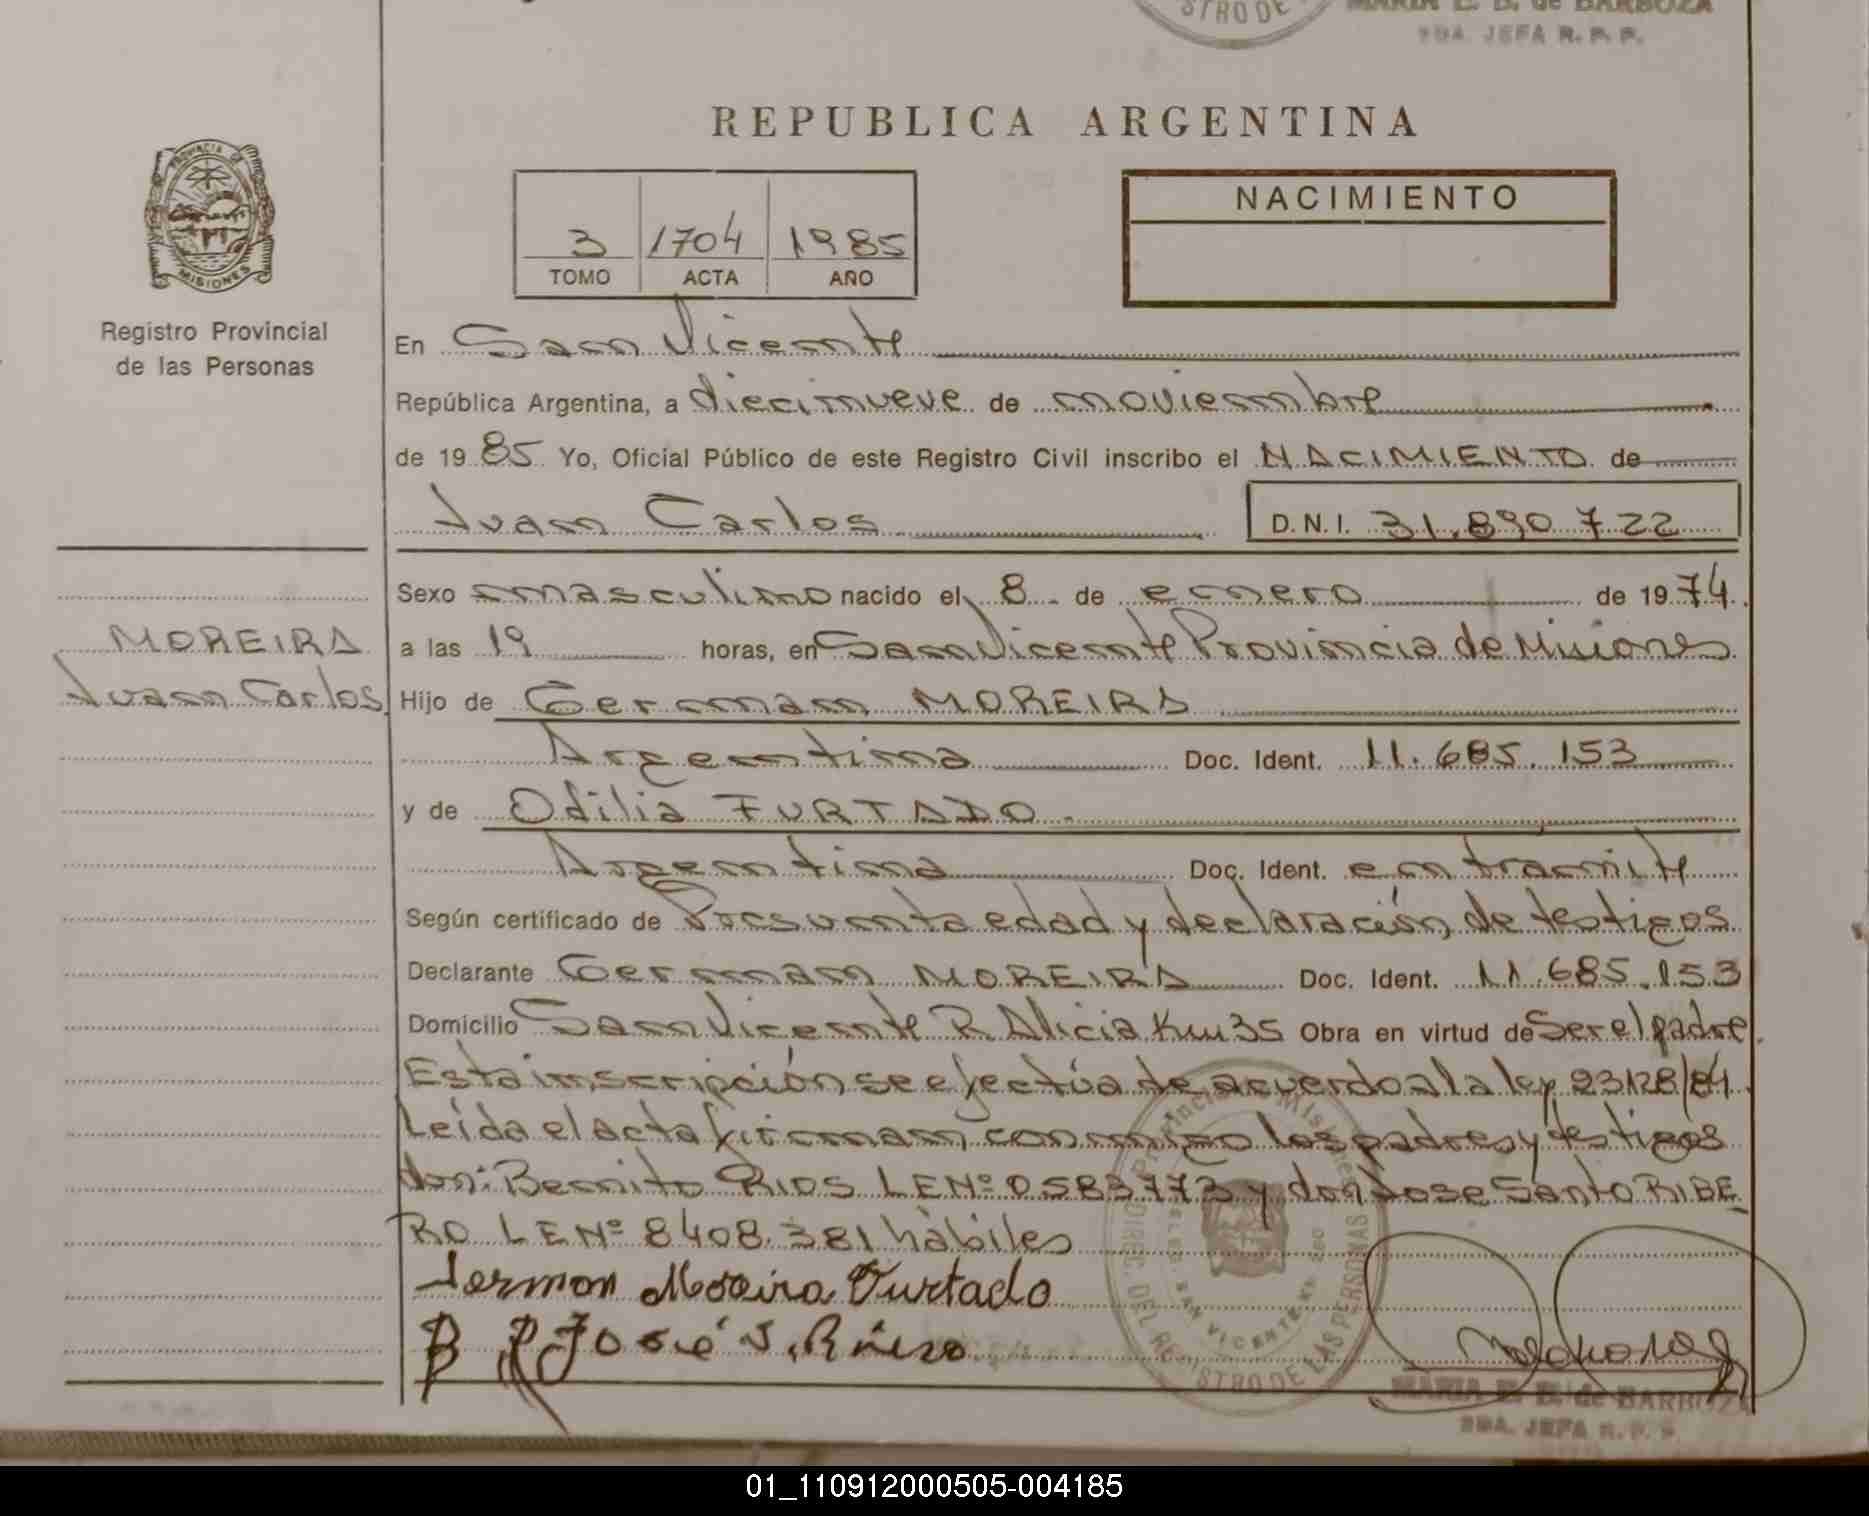 STRO DE
MARIA E. B. de BARBOZA
2DA. JEFA R. P. P.
REPUBLICA ARGENTINA
PROVINCIA DE
MISIONES
Registro Provincial
de las Personas
3 1704 1985
TOMO ACTA AÑO
NACIMIENTO
En San Vicente
República Argentina, a diecinueve de noviembre
de 19 85 Yo, Oficial Público de este Registro Civil inscribo el NACIMIENTO de
Juan Carlos D.N.I. 31.890.722
Sexo masculino nacido el 8 de enero de 19 74
MOREIRA
Juan Carlos
a las 19 horas, en San Vicente Provincia de Misiones
Hijo de German MOREIRA
Argentina Doc. Ident. 11.685.153
y de Odilia FURTADO
Argentina Doc. Ident. en tramite
Según certificado de Presunta edad y declaración de testigos
Declarante German MOREIRA Doc. Ident. 11.685.153
Domicilio San Vicente R. Alicia Km 35 Obra en virtud de Ser el padre
Esta inscripción se efectúa de acuerdo a la ley 23128/84
Leída el acta firman conmigo los padres y testigos
don: Bernito RIOS LE Nº 0583773 y don Jose Santo RIBE
RO LE Nº 8408.381 hábiles
German Moreira Furtado
B R José S. Ribero
DIREC. DEL REGISTRO DE LAS PERSONAS
SAN VICENTE
MARIA E. B. de BARBOZA
2DA. JEFA R. P. P.
01_110912000505-004185